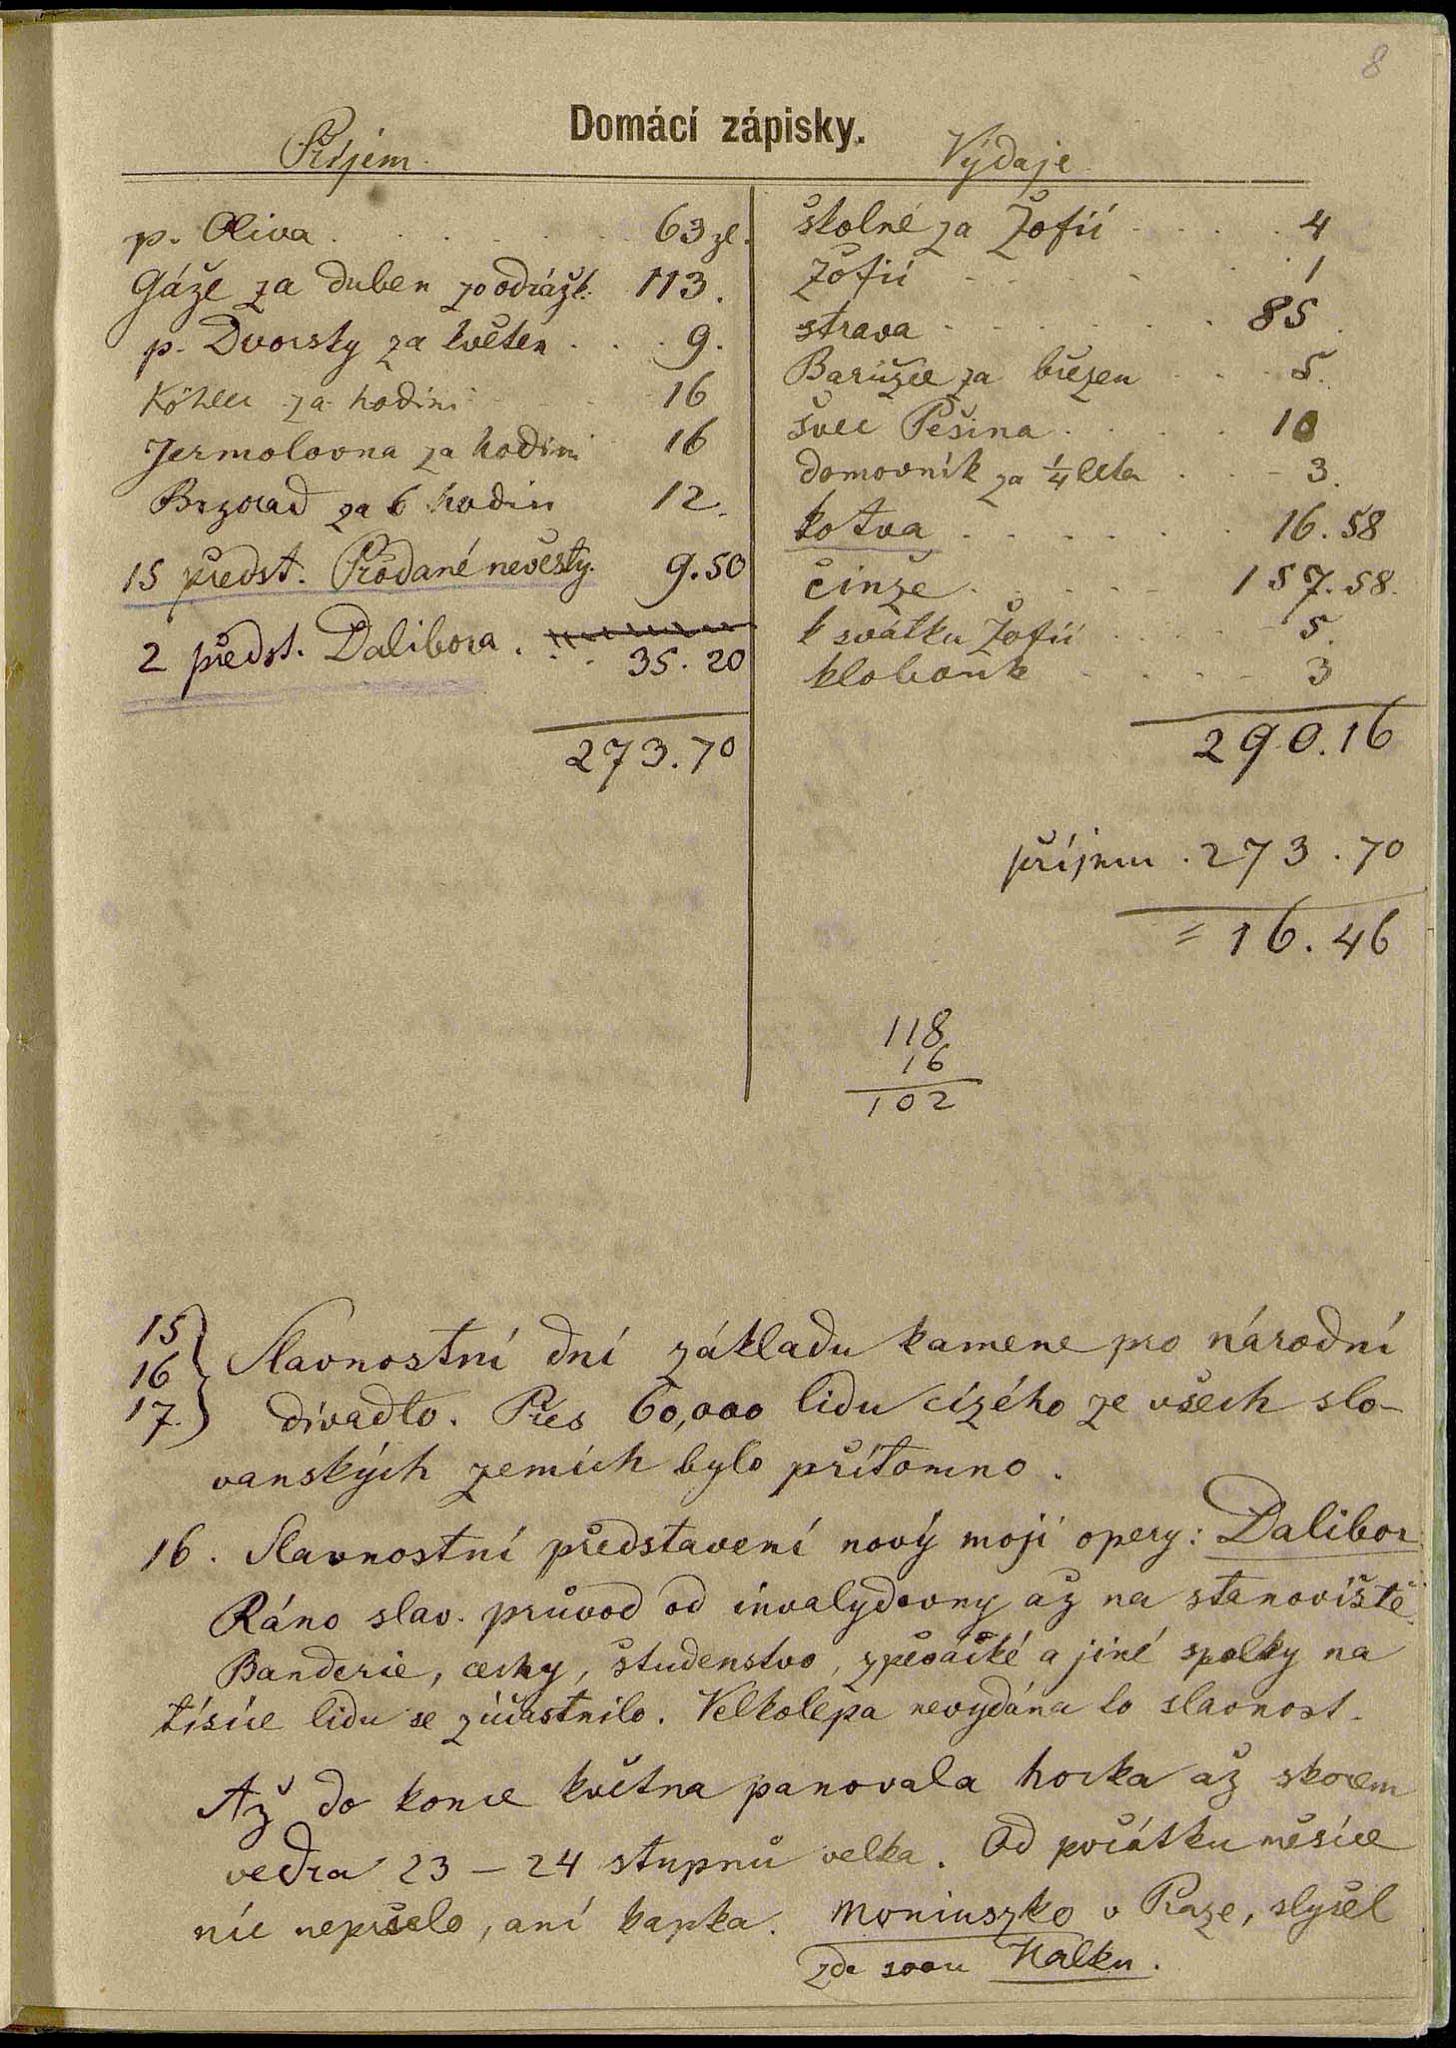 8
Domácí zápisky.
Příjem.
p. Oliva . . . . . . 63 zl.
Gáže za duben po odrážk. 113.
p. Dvorsky za květen . . . 9.
Köhler za hodini 16
Jermolovna za hodini 16
Brzorad za 6 hodin 12.
15 předst. Prodané nevěsty. 9.50
2 předst. Dalibora . . . 35.20
273.70
Výdaje
školné za Žofii . . . . 4
Žofii . . . . . 1
strava . . . . . . 85.
Barušce za březen . . . 5.
švec Pešina . . . . 10
domovník za 1/4 leta . . . 3.
kotva . . . . . . 16.58
činže . . . . . 157.58.
k svátku Žofii . . . . 5.
klobouk . . . . 3
290.16
příjmu . 273.70
= 16.46
118
16
102
15
16
17.
Slavnostní dní základu kamene pro národní
divadlo. Přes 60,000 lidu cizého ze všech slo-
vanských zemích bylo přítomno.
16. Slavnostní představení nový mojí opery: Dalibor.
Ráno slav. průvod od invalydovny až na stanoviště.
Banderie, cechy, študenstvo, zpěváčké a jiné spolky na
tisíce lidu se zúčastnilo. Velkolepa nevydána to slavnost.
Až do konce května panovala horka až skorem
vedra 23 – 24 stupnů velka. Od počátku měsíce
nic nepršelo, aní kapka. Moniuszko v Praze, slyšel
zde svou Halku.